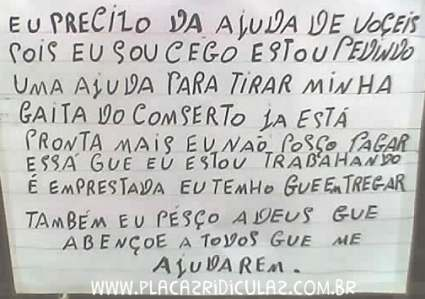 EU PRECIZO DA AJUDA DE VOÇEIS
POIS EU SOU CEGO ESTOU PEDINDO
UMA AJUDA PARA TIRAR MINHA
GAITA DO COMSERTO JA ESTÁ
PRONTA MAIS EU NAO POSÇO PAGAR
ESSÁ GUE EU ESTOU TRABAHANDO
É EMPRESTADA EU TEMHO GUE EMTREGAR
TAMBÉM EU PÉSÇO A DEUS GUE
ABENÇOE A TODOS GUE ME
AJUDAREM.
WWW.PLACAZRIDICULAZ.COM.BR